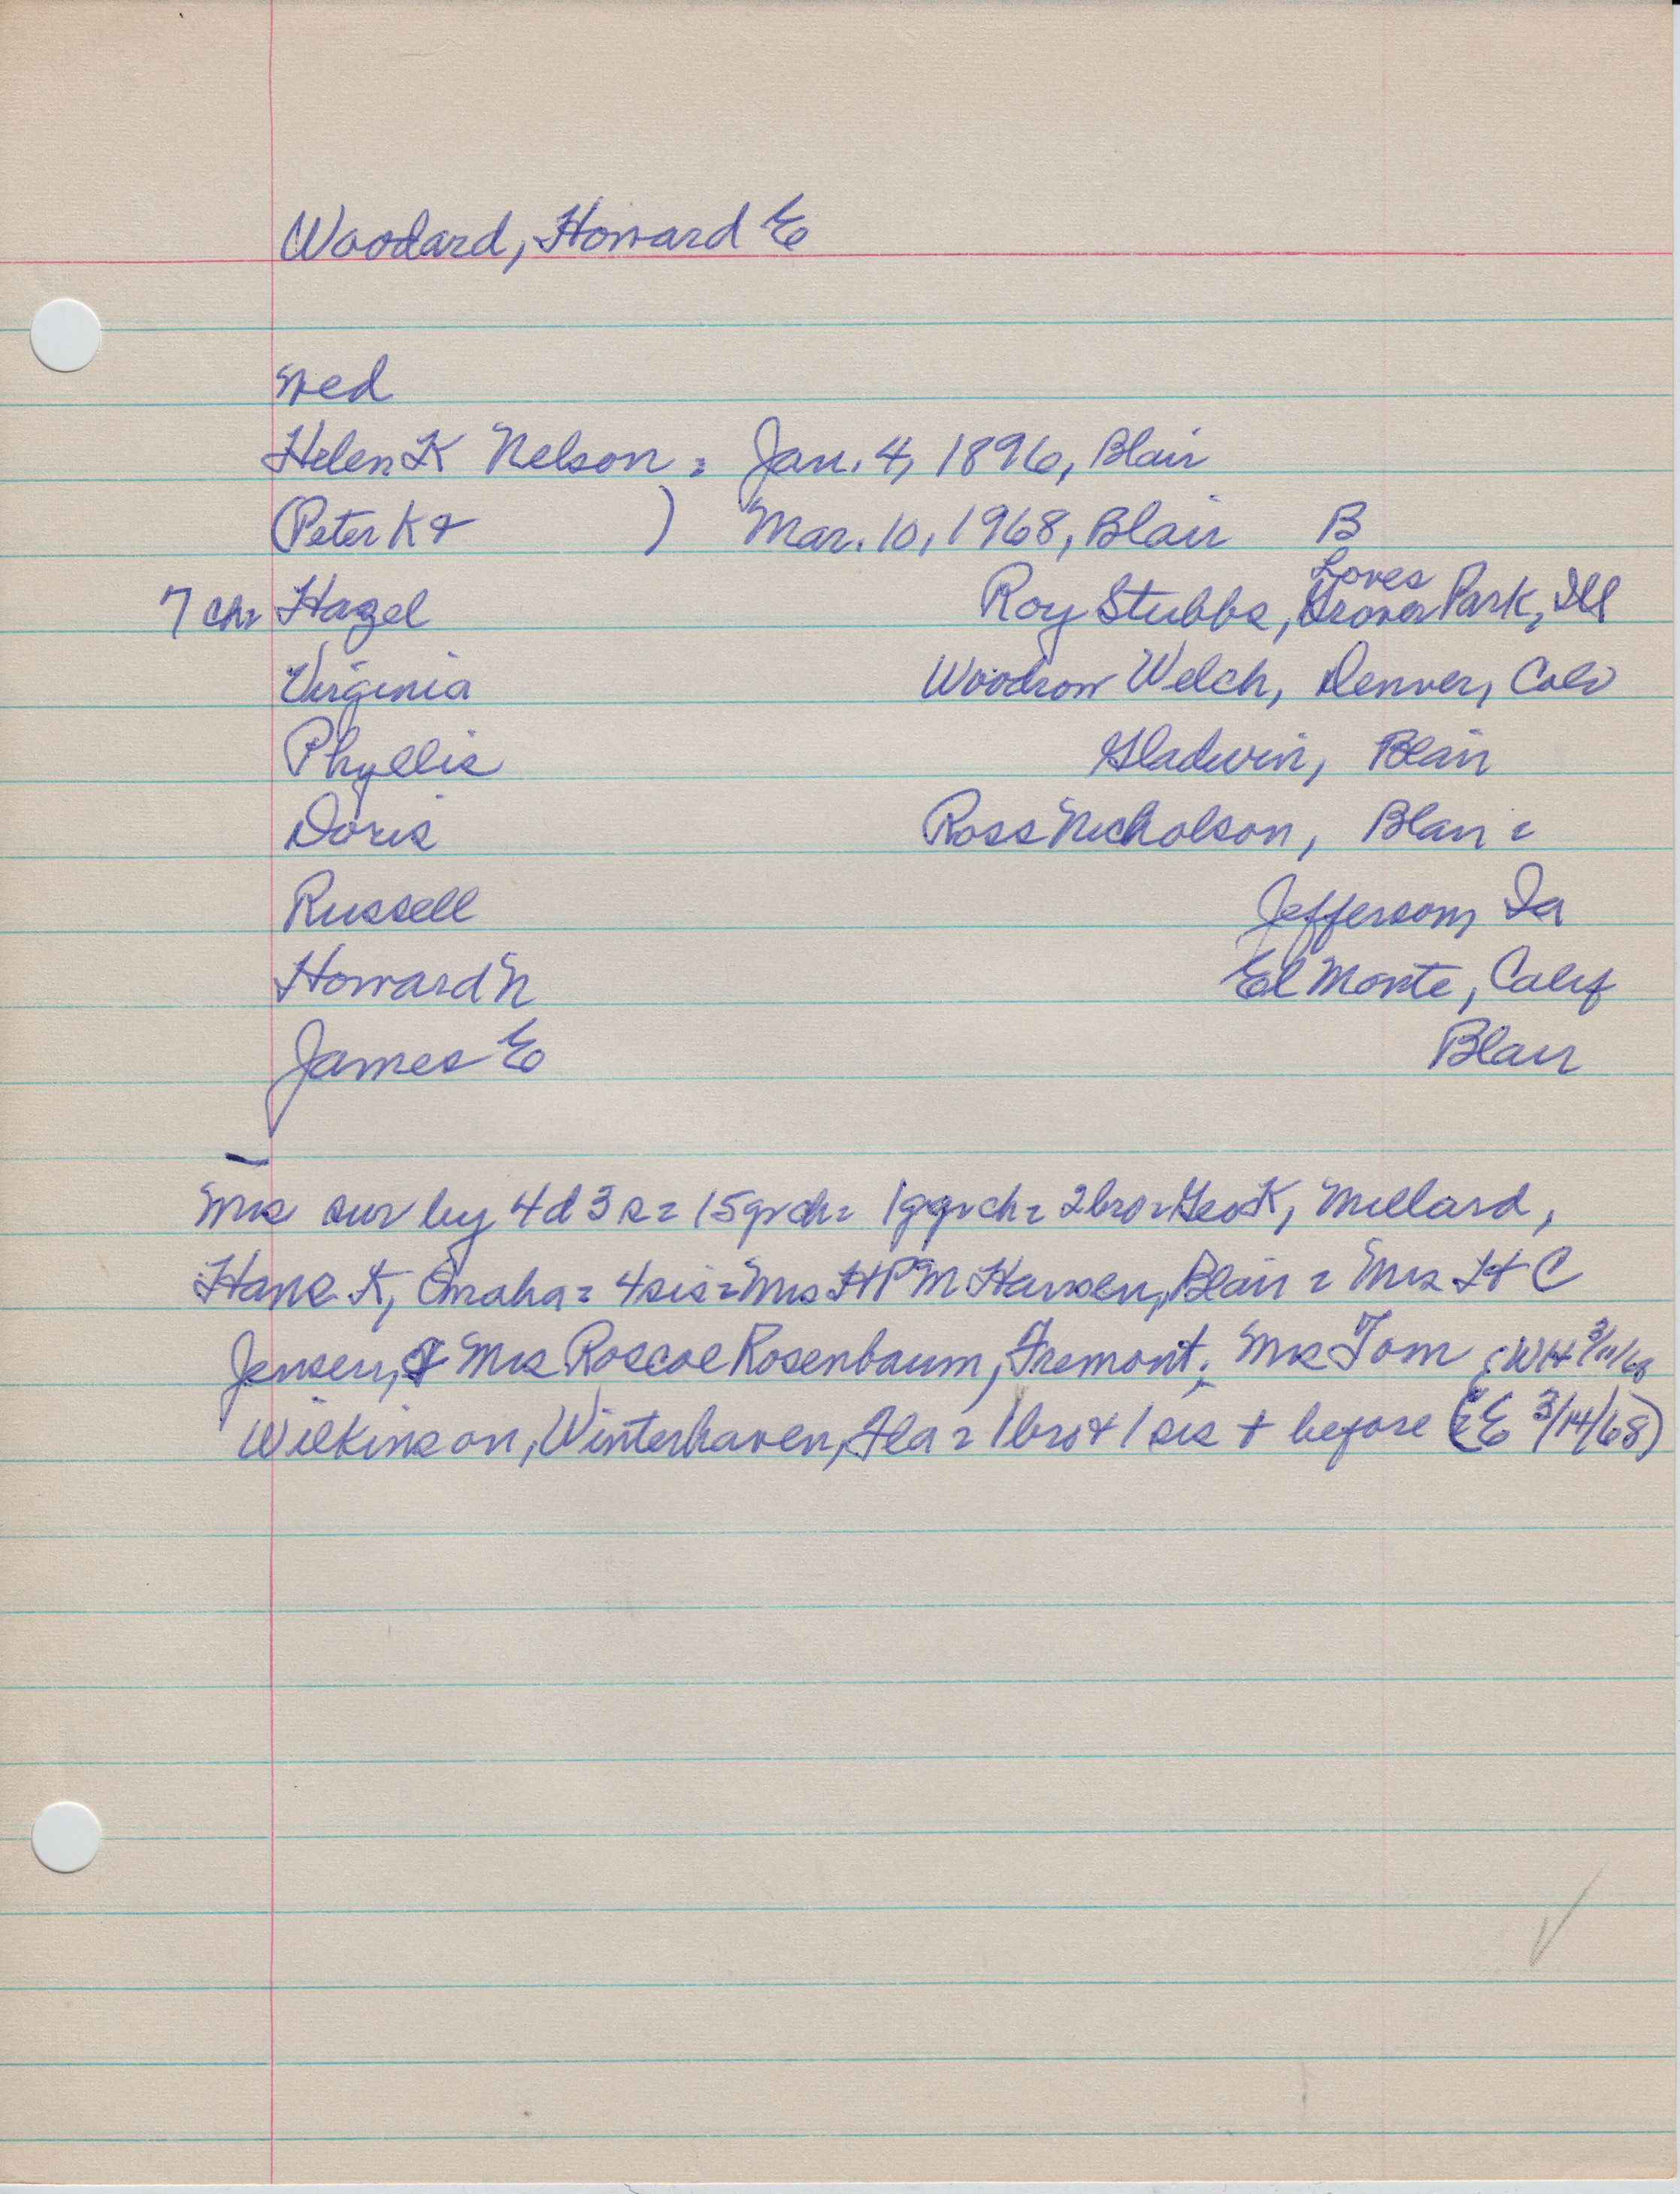 Woodard, Howard E
med
Helen K Nelson = Jan. 4, 1896, Blair
(Peter K & ) Mar. 10, 1968, Blair B
Loves
7 ch= Hazel Roy Stubbs, Grover Park, Ill
Virginia Woodrow Welch, Denver, Colo
Phyllis Gladwin, Blair
Doris Ross Nicholson, Blair =
Russell Jefferson, Ia
Howard N El Monte, Calif
James E Blair
Mrs sur by 4d 3s = 15grch= 1ggrch= 2bro=Geo K, Millard,
Hans K, Omaha= 4sis=Mrs HPM Hansen, Blair = Mrs H C
Jensen, & Mrs Roscoe Rosenbaum, Fremont; Mrs Tom (WH 3/11/68
Wilkinson, Winterhaven, Fla = 1bro & 1 sis + before (=E 3/14/68)